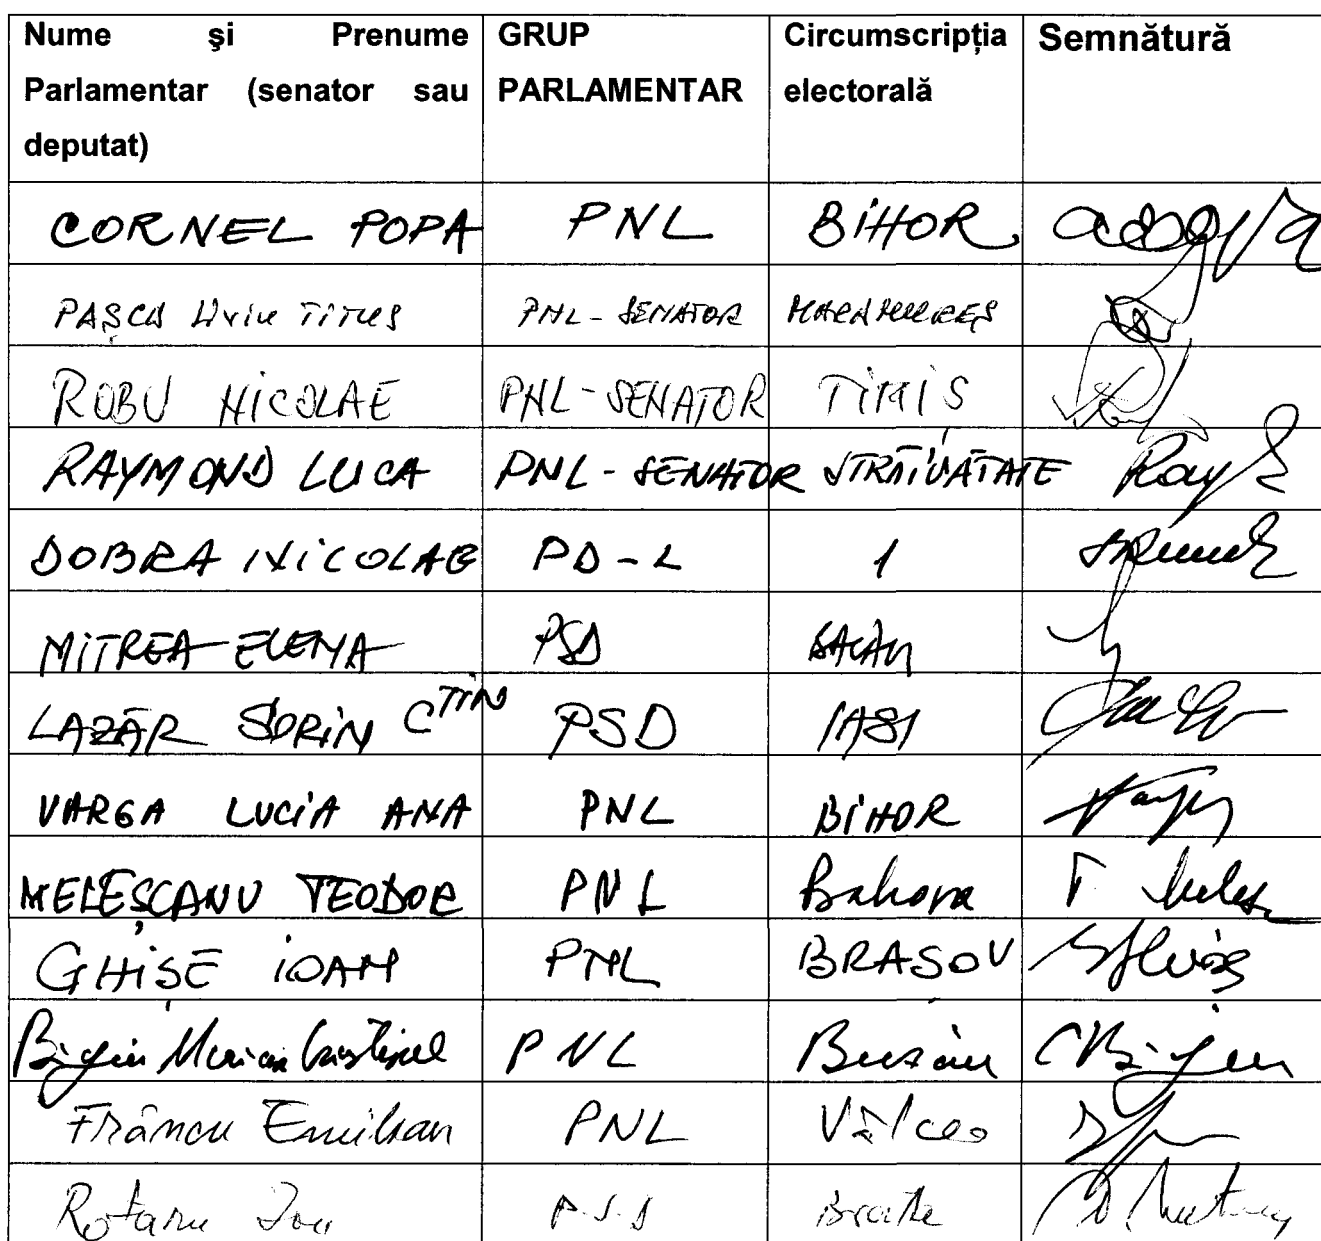 Nume şi Prenume Parlamentar (senator sau deputat) GRUP PARLAMENTAR Circumscripţia electorală Semnătură
CORNEL POPA PNL BIHOR
PAŞCU Liviu TITUS PNL-SENATOR MARAMUREŞ
ROBU NICOLAE PNL-SENATOR TIMIS
RAYMOND LUCA PNL-SENATOR STRĂINĂTATE Ray
DOBRA NICOLAE PD-L 1
MITREA ELENA PSD BACĂU
LAZĂR SORIN CTIN PSD IASI
VARGA LUCIA ANA PNL BIHOR
MELEŞCANU TEODOR PNL Prahova
GHIŞE IOAN PNL BRASOV
Bigiu Marian Cristinel PNL Buzău
Frâncu Emilian PNL Vâlcea
Rotaru Ion